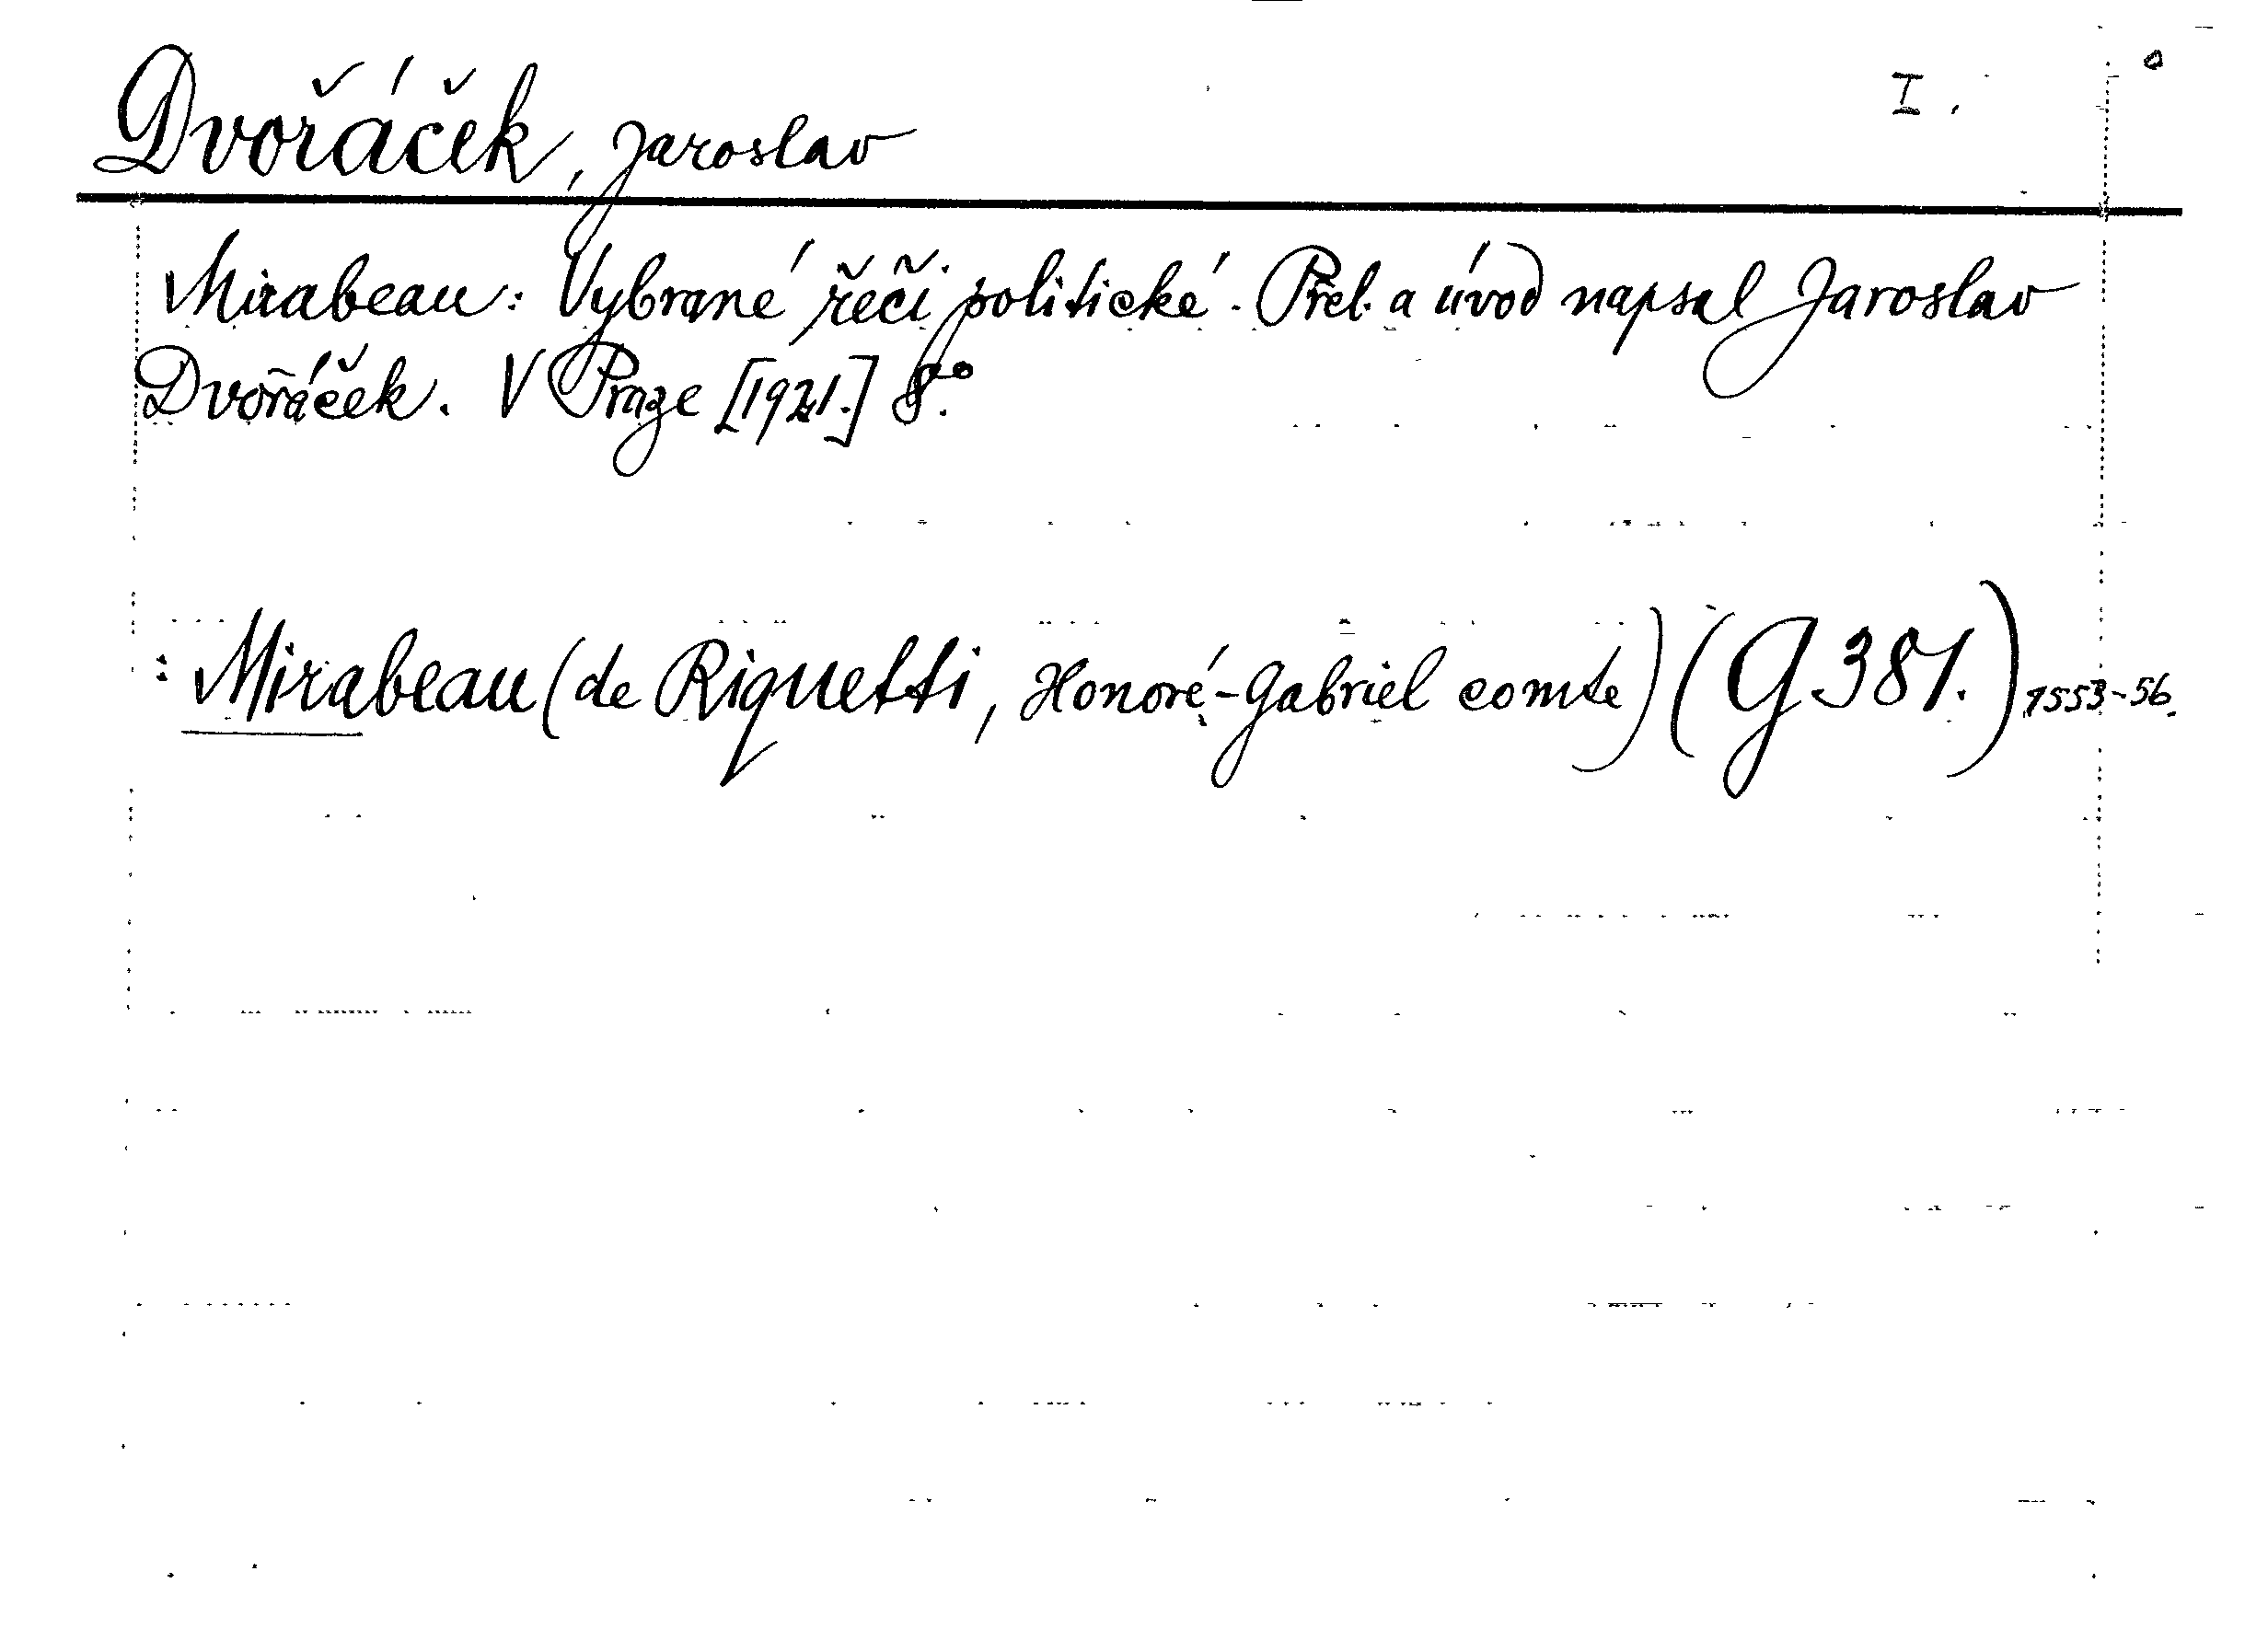 Dvořáček, Jaroslav I.
Mirabeau: Vybrané řeči politické. Přel. a úvod napsal Jaroslav
Dvořáček. V Praze [1921.] 8°.
: Mirabeau (de Riquetti, Honoré-Gabriel comte) (G 381.) 1553-56.